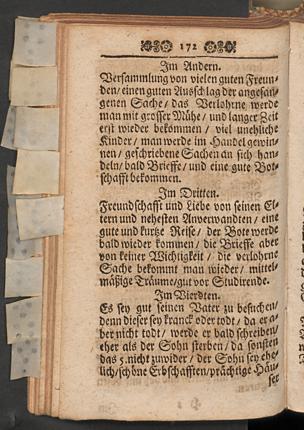 172
Im Andern.
Versammlung von vielen guten Freun-
den/ einen guten Ausschlag der angefan-
genen Sache/ das Verlohrne werde
man mit grosser Mühe/ und langer Zeit
erst wieder bekommen/ viel unehliche
Kinder/ man werde im Handel gewin-
nen/ geschriebene Sachen an sich han-
deln/ bald Brieffe/ und eine gute Bot-
schafft bekommen.
Im Dritten.
Freundschafft und Liebe von seinen El-
tern und nehesten Anverwandten/ eine
gute und kurtze Reise/ der Bote werde
bald wieder kommen/ die Brieffe aber
von keiner Wichtigkeit/ die verlohrne
Sache bekommt man wieder/ mittel-
mäßige Träume/ gut vor Studirende.
Im Vierdten.
Es sey gut seinen Vater zu besuchen/
denn dieser sey kranck oder todt/ da er a-
ber nicht todt/ werde er bald schreiben/
eher als der Sohn sterben/ da sonsten
das 5. nicht zuwider/ der Sohn sey ehe-
lich/ schöne Erbschafften/ prächtige Häu-
ser